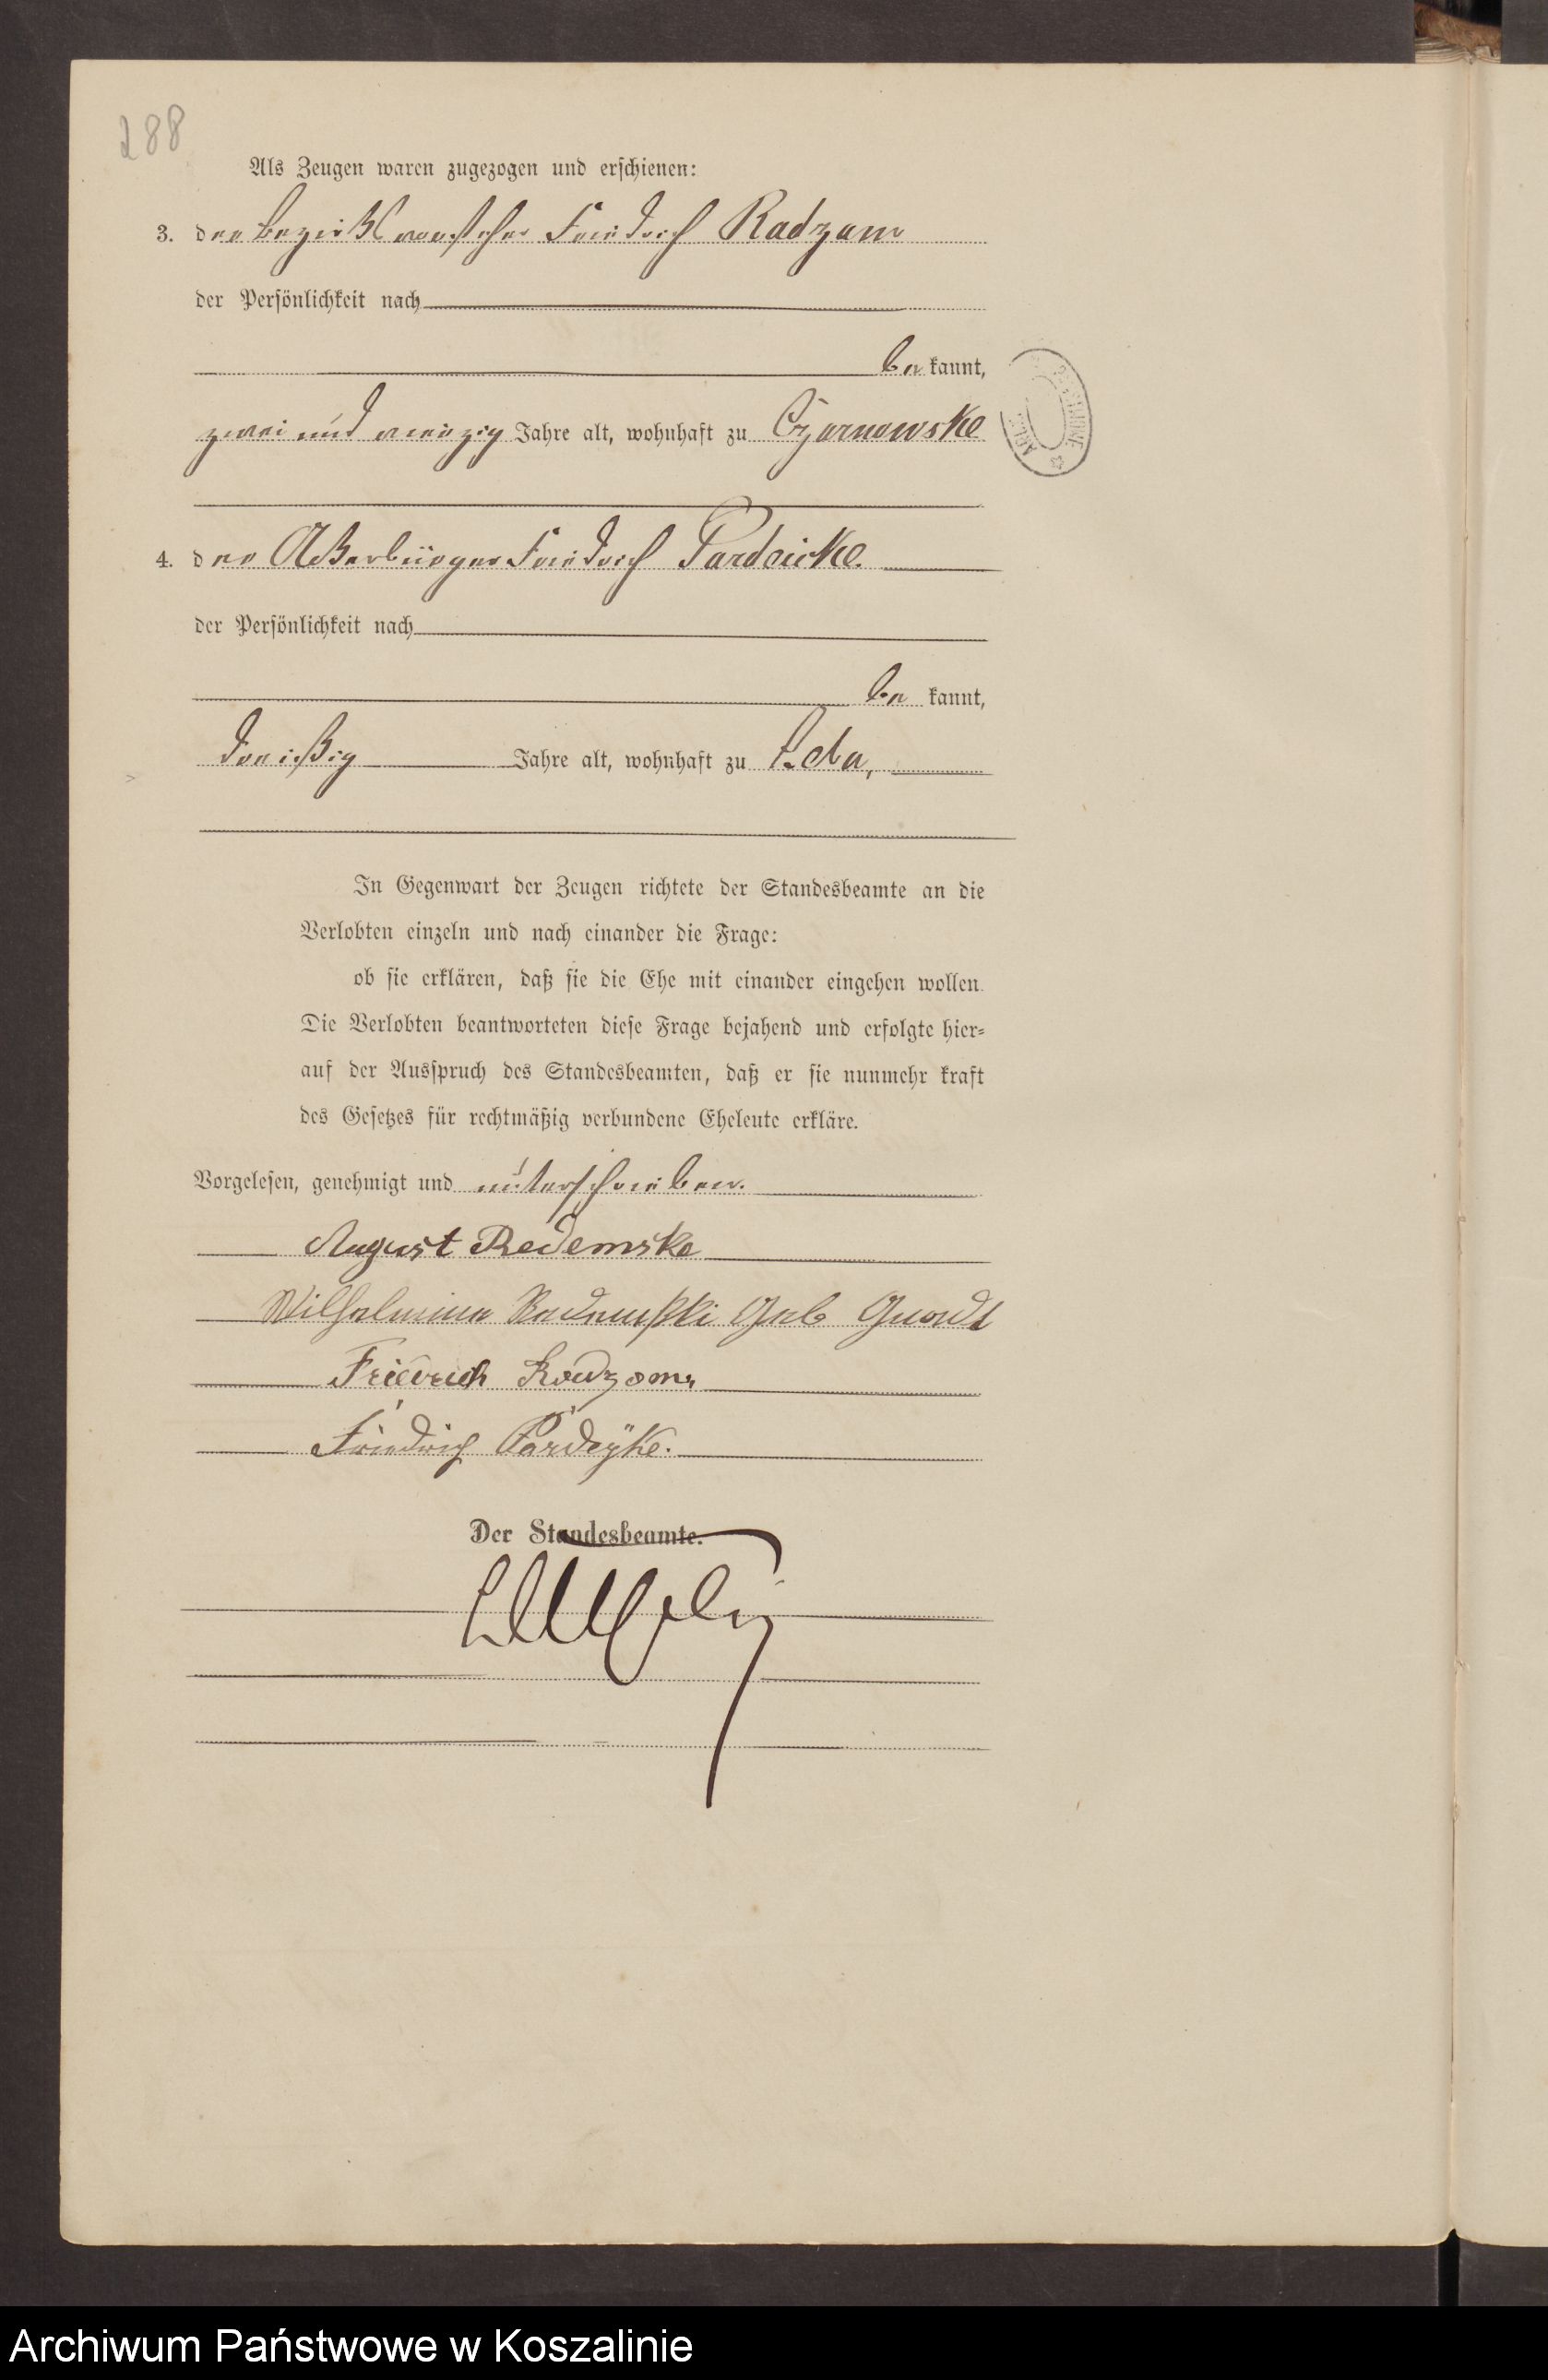 288
Als Zeugen waren zugezogen und erschienen:
3. der Bezirksvorsteher Friedrich Radzom
der Persönlichkeit nach
be kannt,
zwei und vierzig Jahre alt, wohnhaft zu Czarnowske
4. der Ackerbürger Friedrich Pardeicke.
der Persönlichkeit nach
be kannt,
dreißig Jahre alt, wohnhaft zu Leba,
In Gegenwart der Zeugen richtete der Standesbeamte an die
Verlobten einzeln und nach einander die Frage:
ob sie erklären, daß sie die Ehe mit einander eingehen wollen.
Die Verlobten beantworteten diese Frage bejahend und erfolgte hier-
auf der Ausspruch des Standesbeamten, daß er sie nunmehr kraft
des Gesetzes für rechtmäßig verbundene Eheleute erkläre.
Vorgelesen, genehmigt und unterschrieben.
August Redemske
Wilhelmine Redemski Geb
Friedrich Radzom
Friedrich Pardeyke.
Der Standesbeamte.
Archiwum Państwowe w Koszalinie